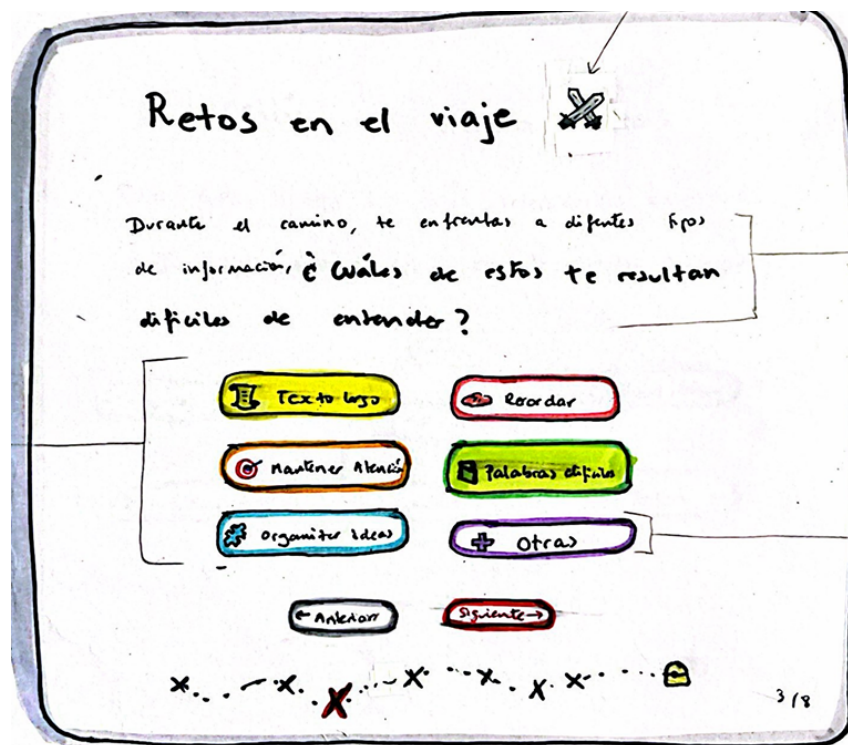 Retos en el viaje
Durante el camino, te enfrentas a difentes tipos
de información, ¿Cuáles de estos te resultan
difíciles de entender?
Texto largo
Recordar
Mantener Atención
Palabras difíciles
Organizar ideas
Otras
← Anterior
Siguiente →
3/8